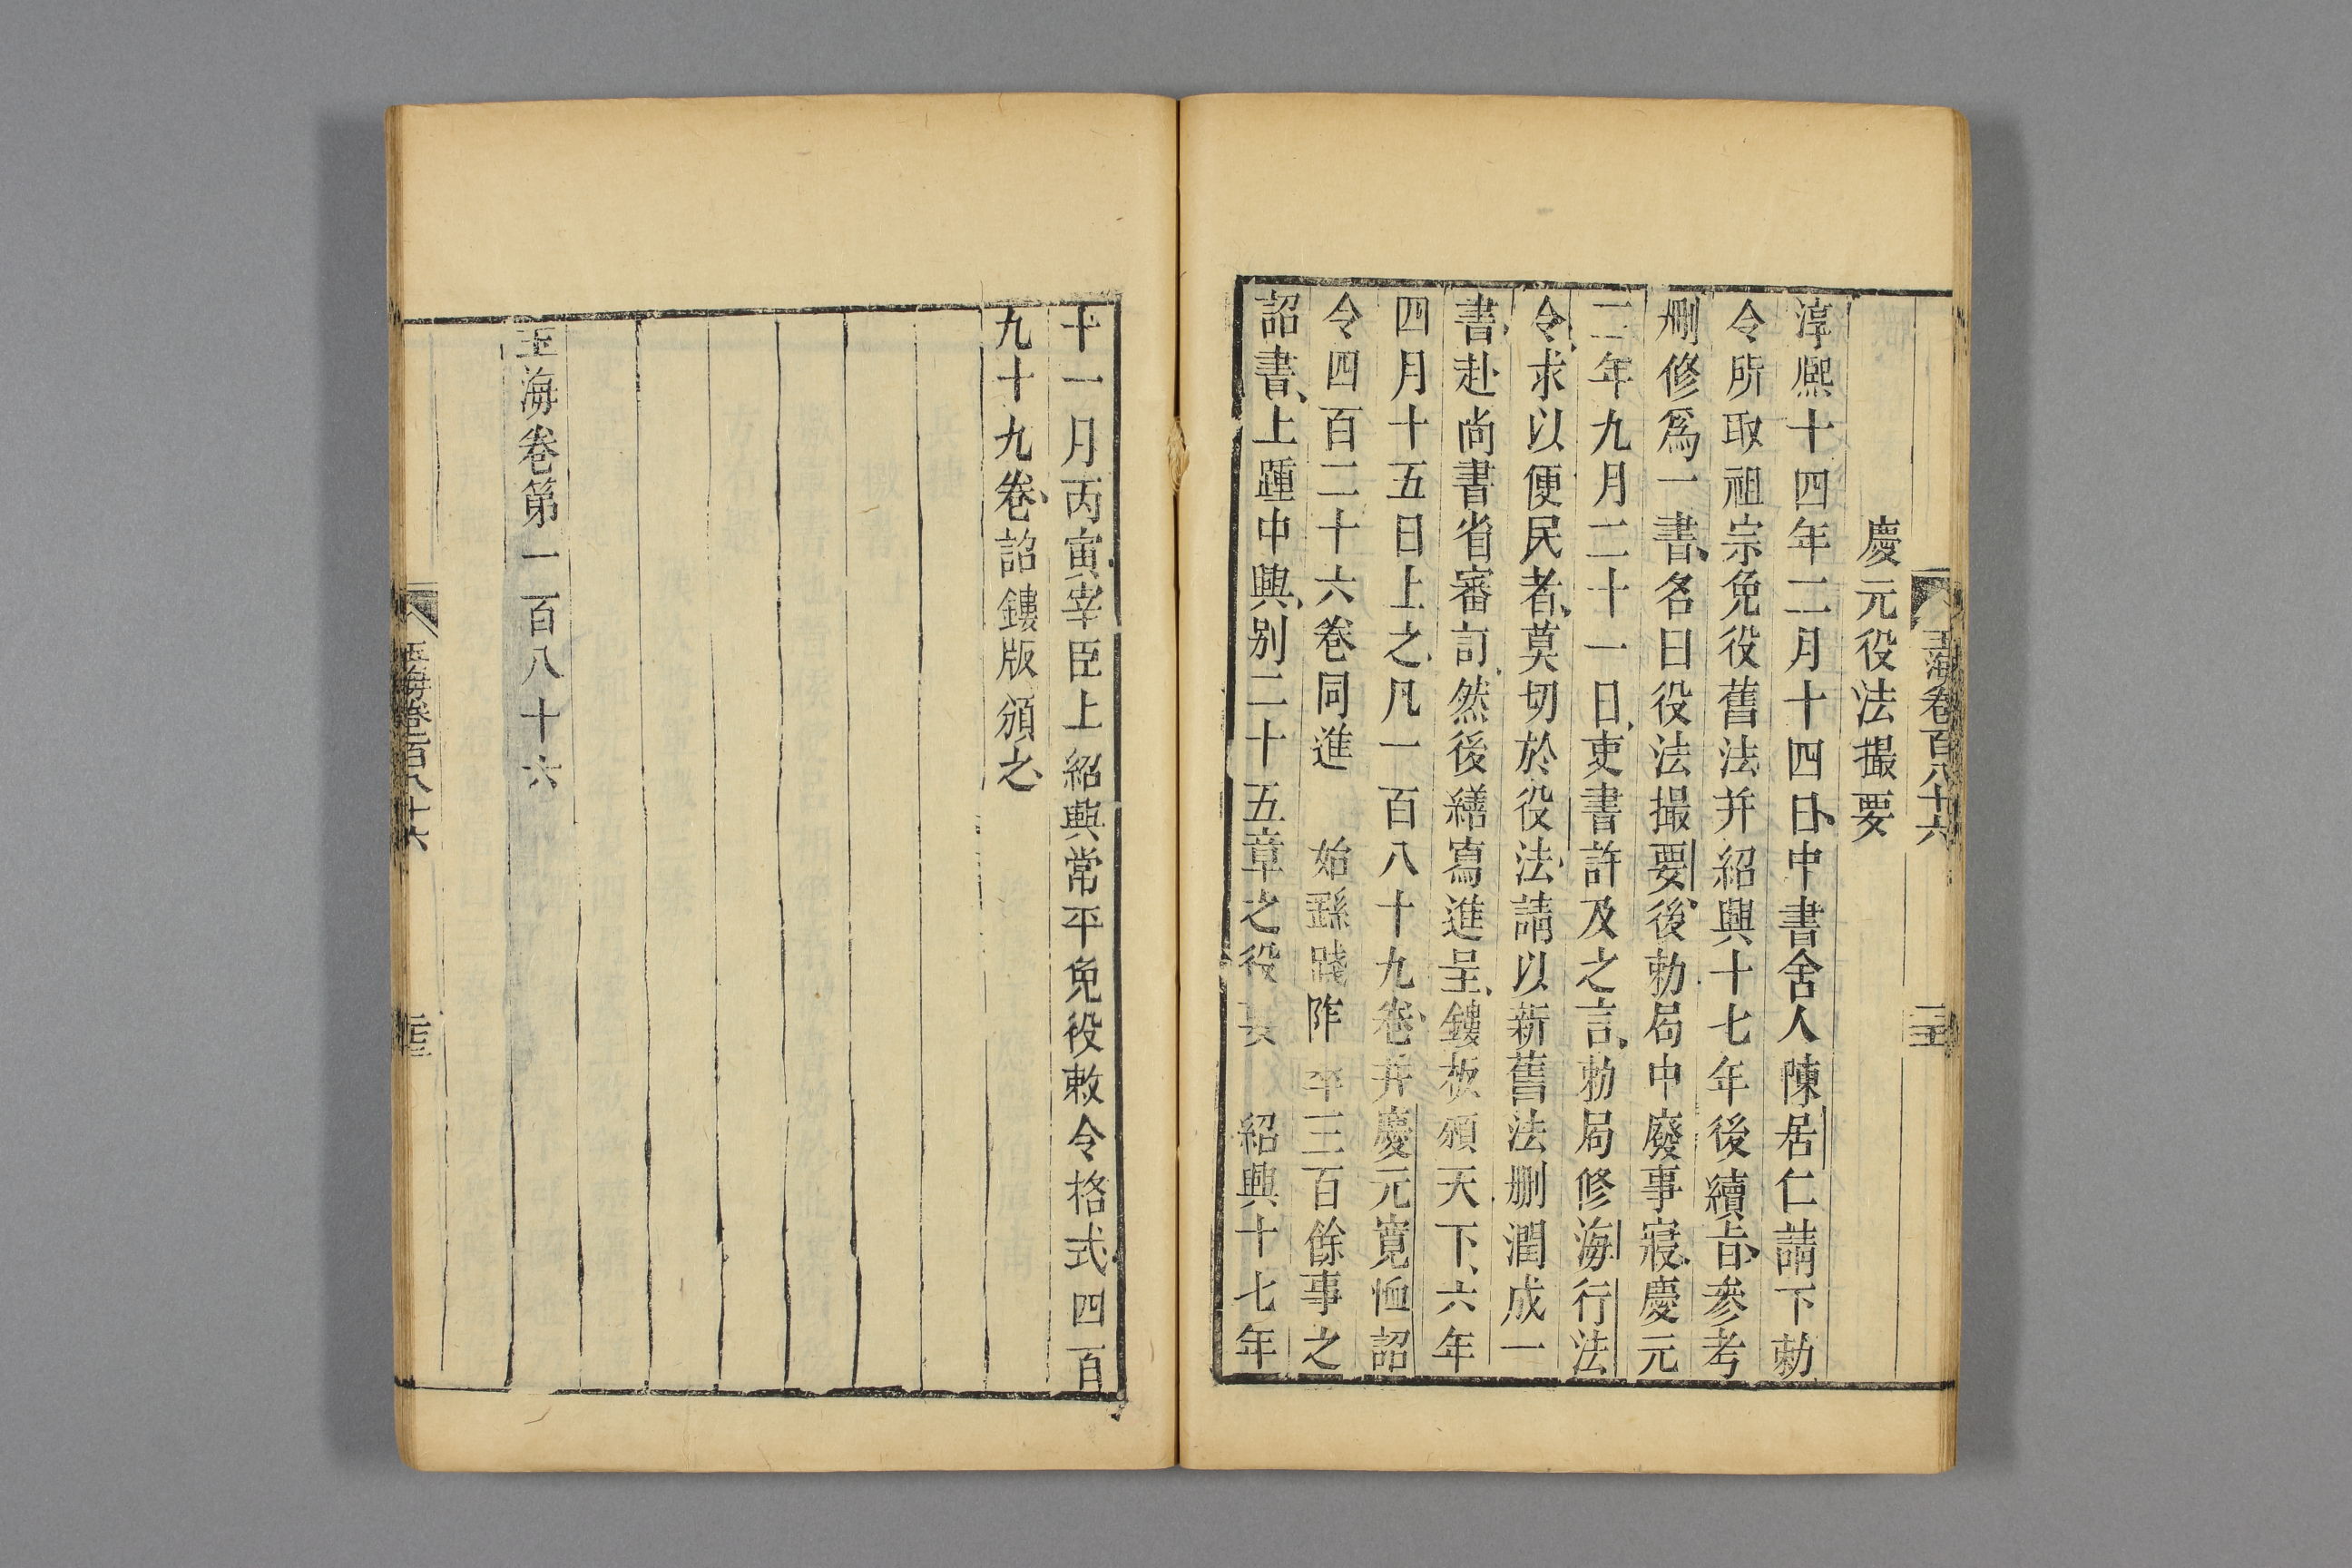 玉海卷百八十六
慶元役法撮要
淳熙十四年二月十四日中書舍人陳居仁請下勑
令所取祖宗免役舊法并紹興十七年後續㫖參考
刪修爲一書名曰役法撮要後勑局中廢事寢慶元
二年九月二十一日吏書許及之言勑局修海行法
令求以便民者莫切於役法請以新舊法刪潤成一
書赴尚書省審訂然後繕寫進呈鏤板頒天下六年
四月十五日上之凡一百八十九卷并慶元寬恤詔
令四百二十六卷同進 始繇踐阼 三百餘事之
詔書上踵中興別二十五章之役 紹興十七年
十一月丙寅宰臣上紹興常平免役敕令格式四百
九十九卷詔鏤版頒之
玉海卷第一百八十六
玉海卷一百八十六